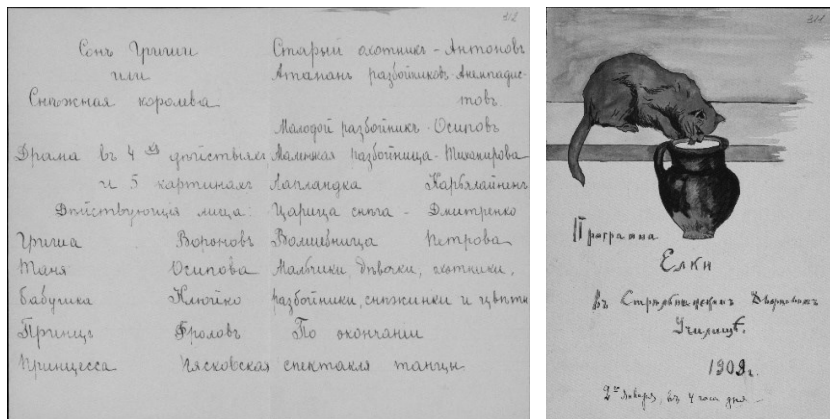 312
Сонъ Гриши
или
Снѣжная королева
Драма въ 4х дѣйствіяхъ
и 5 картинахъ
Дѣйствующія лица:
Гриша Вороновъ
Таня Осипова
Бабушка Клюйко
Принцъ Фроловъ
Принцесса Лясковская
Старый охотникъ - Антоновъ
Атаманъ разбойниковъ - Анемподис-
товъ.
Молодой разбойникъ - Осиповъ
Маленькая разбойница - Тихомирова
Лапландка Карьялайненъ
Царица снѣга - Дмитренко
Волшебница Петрова
Мальчики, дѣвочки, охотники,
разбойники, снѣжинки и цвѣты
По окончаніи
спектакля танцы
311
Программа
Елки
въ Стрѣльнинскомъ Дворцовомъ
Училищѣ.
1909г.
2го Января, въ 4 часа дня